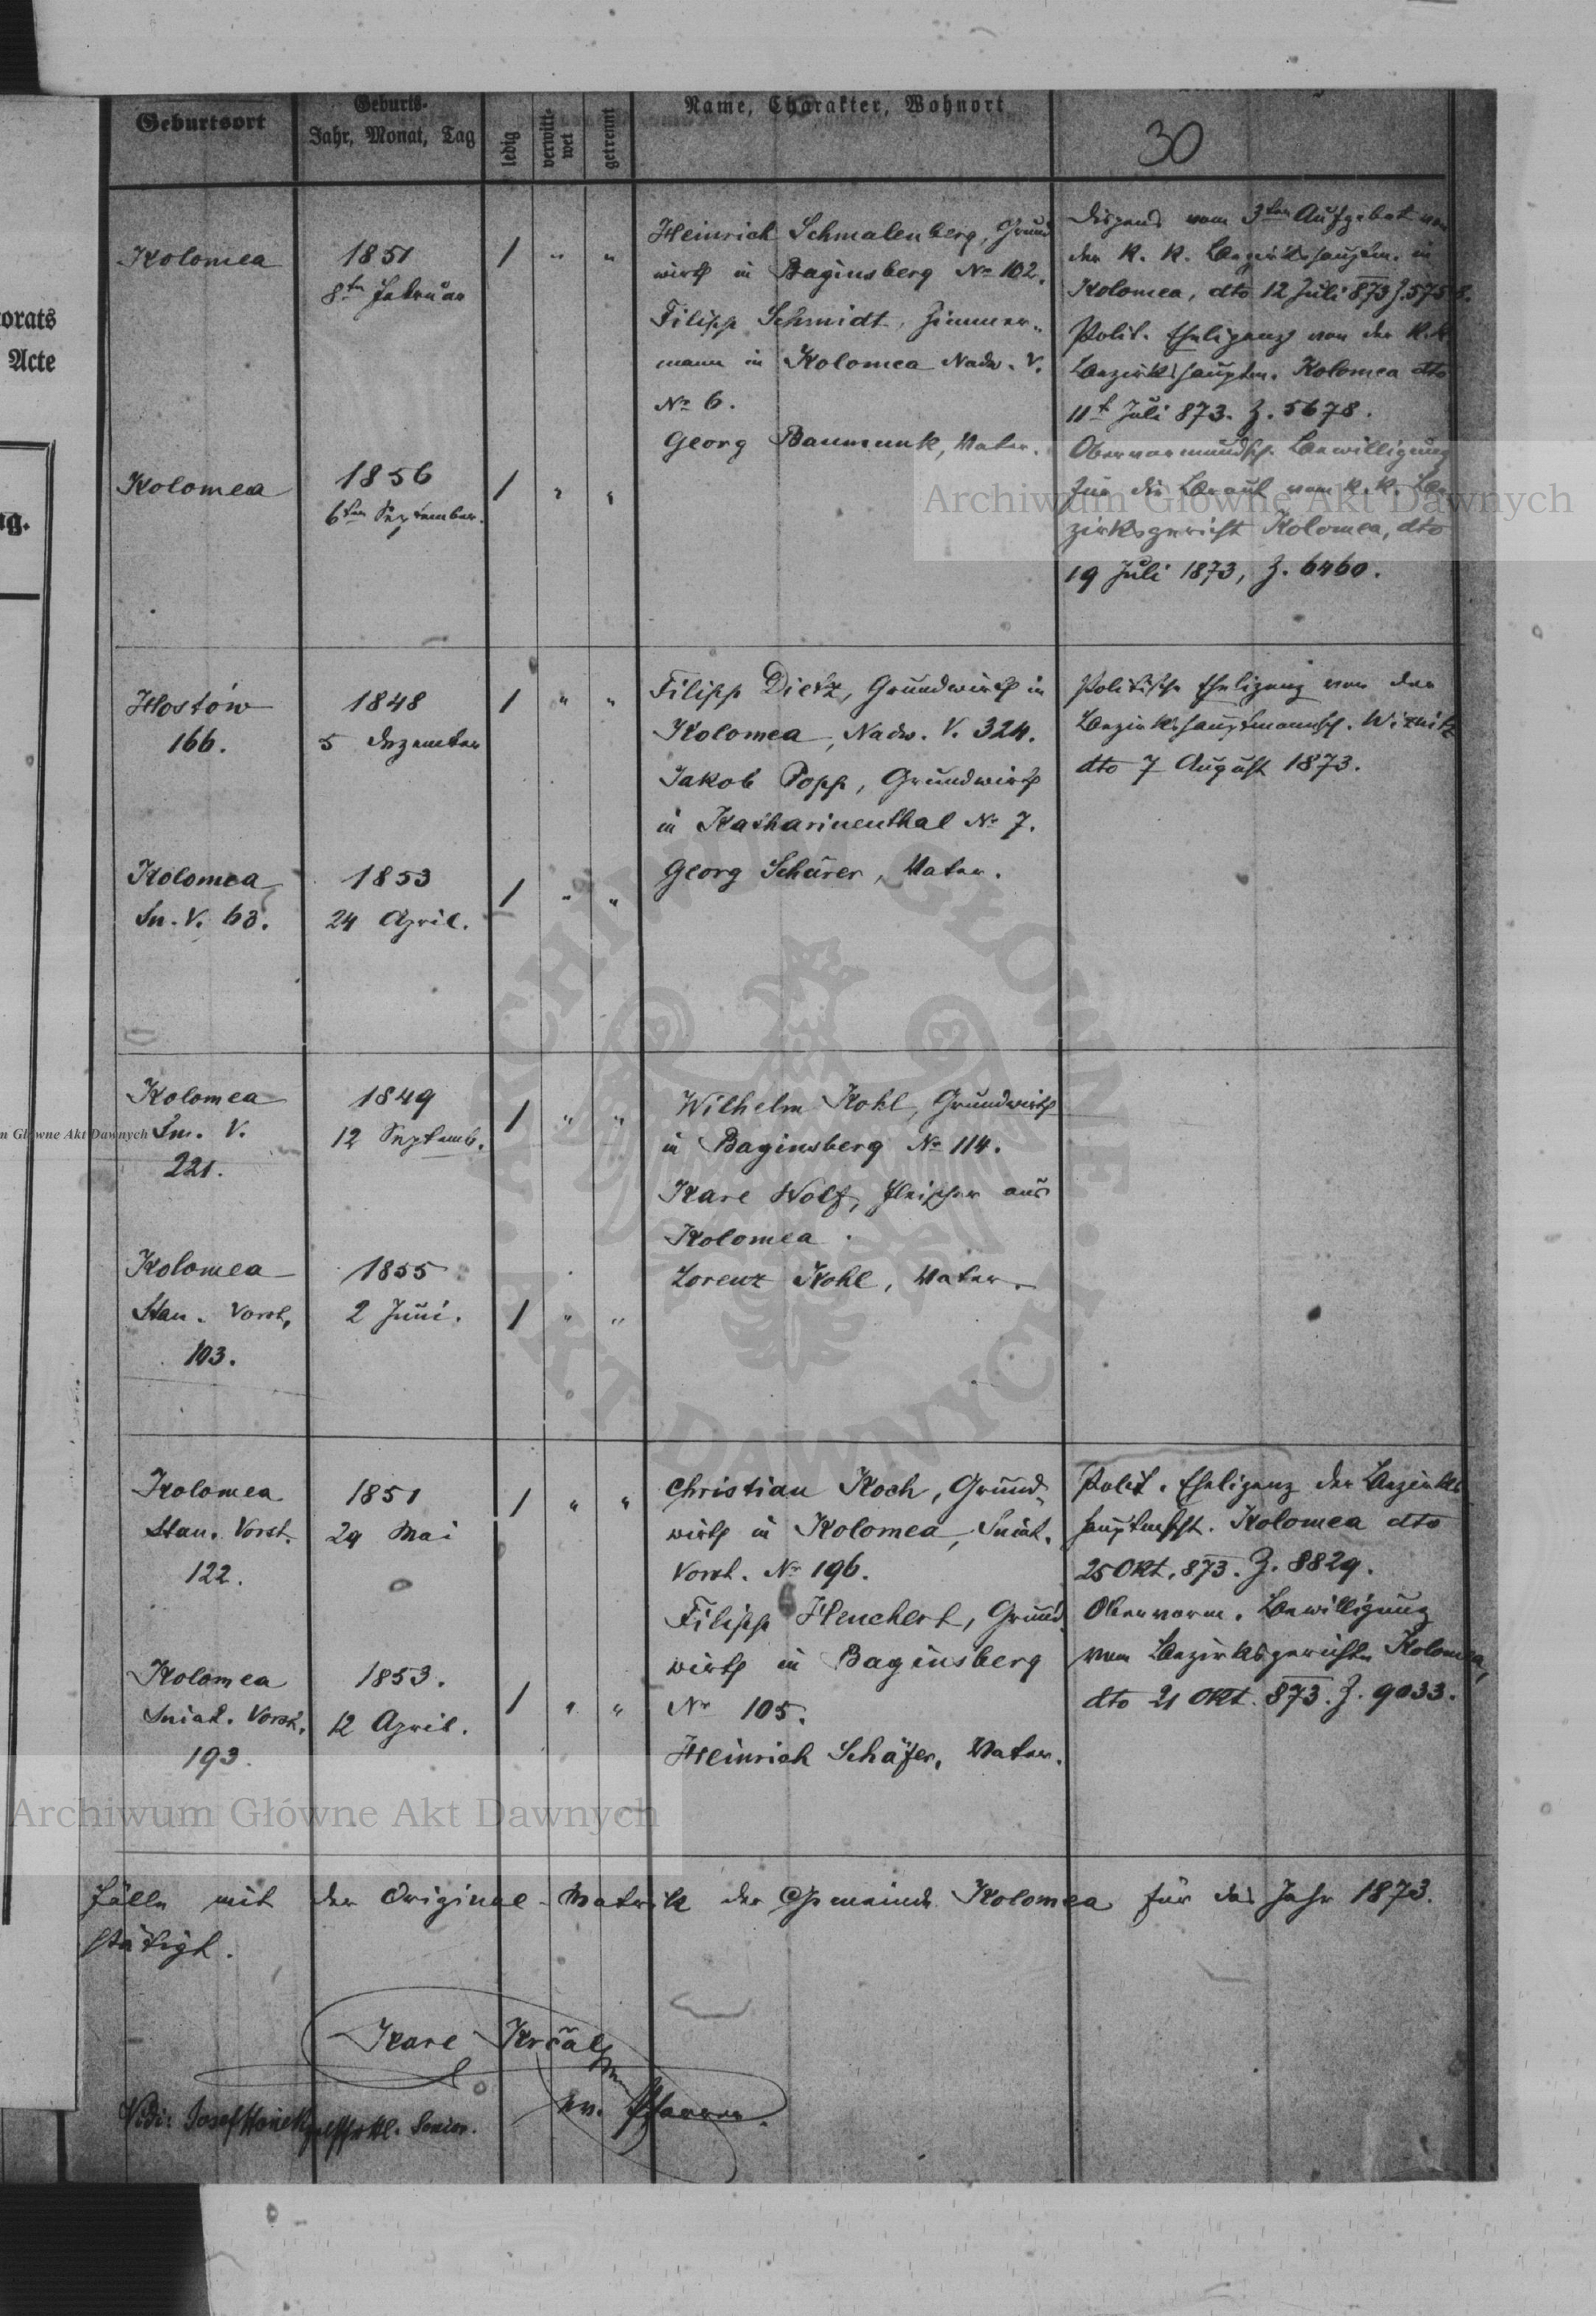 Geburtsort
Geburts-
Jahr, Monat, Tag
ledig
verwitt-
wet
getrennt
Name, Charakter, Wohnort
30
orats
Acte
ng.
Kolomea
1851
8ten Februar
1 " "
Heinrich Schmalenberg, Grund
wirth in Baginsberg No 102.
Filipp Schmidt, Zimmer-
mann in Kolomea Nadw. V.
No 6.
Georg Baumunk, Vater.
Dispens vom 3ten Aufgebot von
der K. K. Bezirkshauptm. in
Kolomea, dto 12 Juli 873 Z. 5758.
Polit. Ehelizenz von der K. K.
Bezirkshauptm. Kolomea dto
11t Juli 873. Z. 5678.
Obervormundsch. Bewilligung
für die Braut vom K. K. Be-
zirksgericht Kolomea, dto
19 Juli 1873, Z. 6460.
Kolomea
1856
6ten September.
1 " "
Hostów
166.
1848
5 Dezember
1 " "
Filipp Dietz, Grundwirth in
Kolomea, Nadw. V. 324.
Jakob Popp, Grundwirth
in Katharinenthal No 7.
Georg Schärer, Vater.
Politische Ehelizenz von der
Bezirkshauptmannsch. Wiznitz
dto 7 August 1873.
Kolomea
Sn. V. 63.
1853
24 April.
1 " "
Kolomea
Sn. V.
221.
1849
12 Septemb.
1 " "
Wilhelm Kohl, Grundwirth
in Baginsberg No 114.
Karl Wolf, Fleischer aus
Kolomea.
Lorenz Kohl, Vater.
Kolomea
Stan. Vorst.
103.
1855
2 Juni.
1 " "
Kolomea
Stan. Vorst.
122.
1851
29 Mai
1 " "
Christian Koch, Grund-
wirth in Kolomea, Sniat.
Vorst. No 196.
Filipp Henchert, Grund-
wirth in Baginsberg
No 105.
Heinrich Schäfer, Vater.
Polit. Ehelizenz der Bezirks
hauptmscht. Kolomea dto
25 Okt. 873. Z. 8829.
Obervorm. Bewilligung
vom Bezirksgerichte Kolomea,
dto 21 Okt. 873. Z. 9033.
Kolomea
Sniat. Vorst.
193.
1853.
12 April.
1 " "
Fälle mit der Original-Matrik der Gemeinde Kolomea für das Jahr 1873.
stätigt.
Karl Krčal
ev. Pfarrer.
Vidi: Josef Senior.
Archiwum Główne Akt Dawnych
n Główne Akt Dawnych
Archiwum Główne Akt Dawnych
ARCHIWUM GŁÓWNE
AKT DAWNYCH